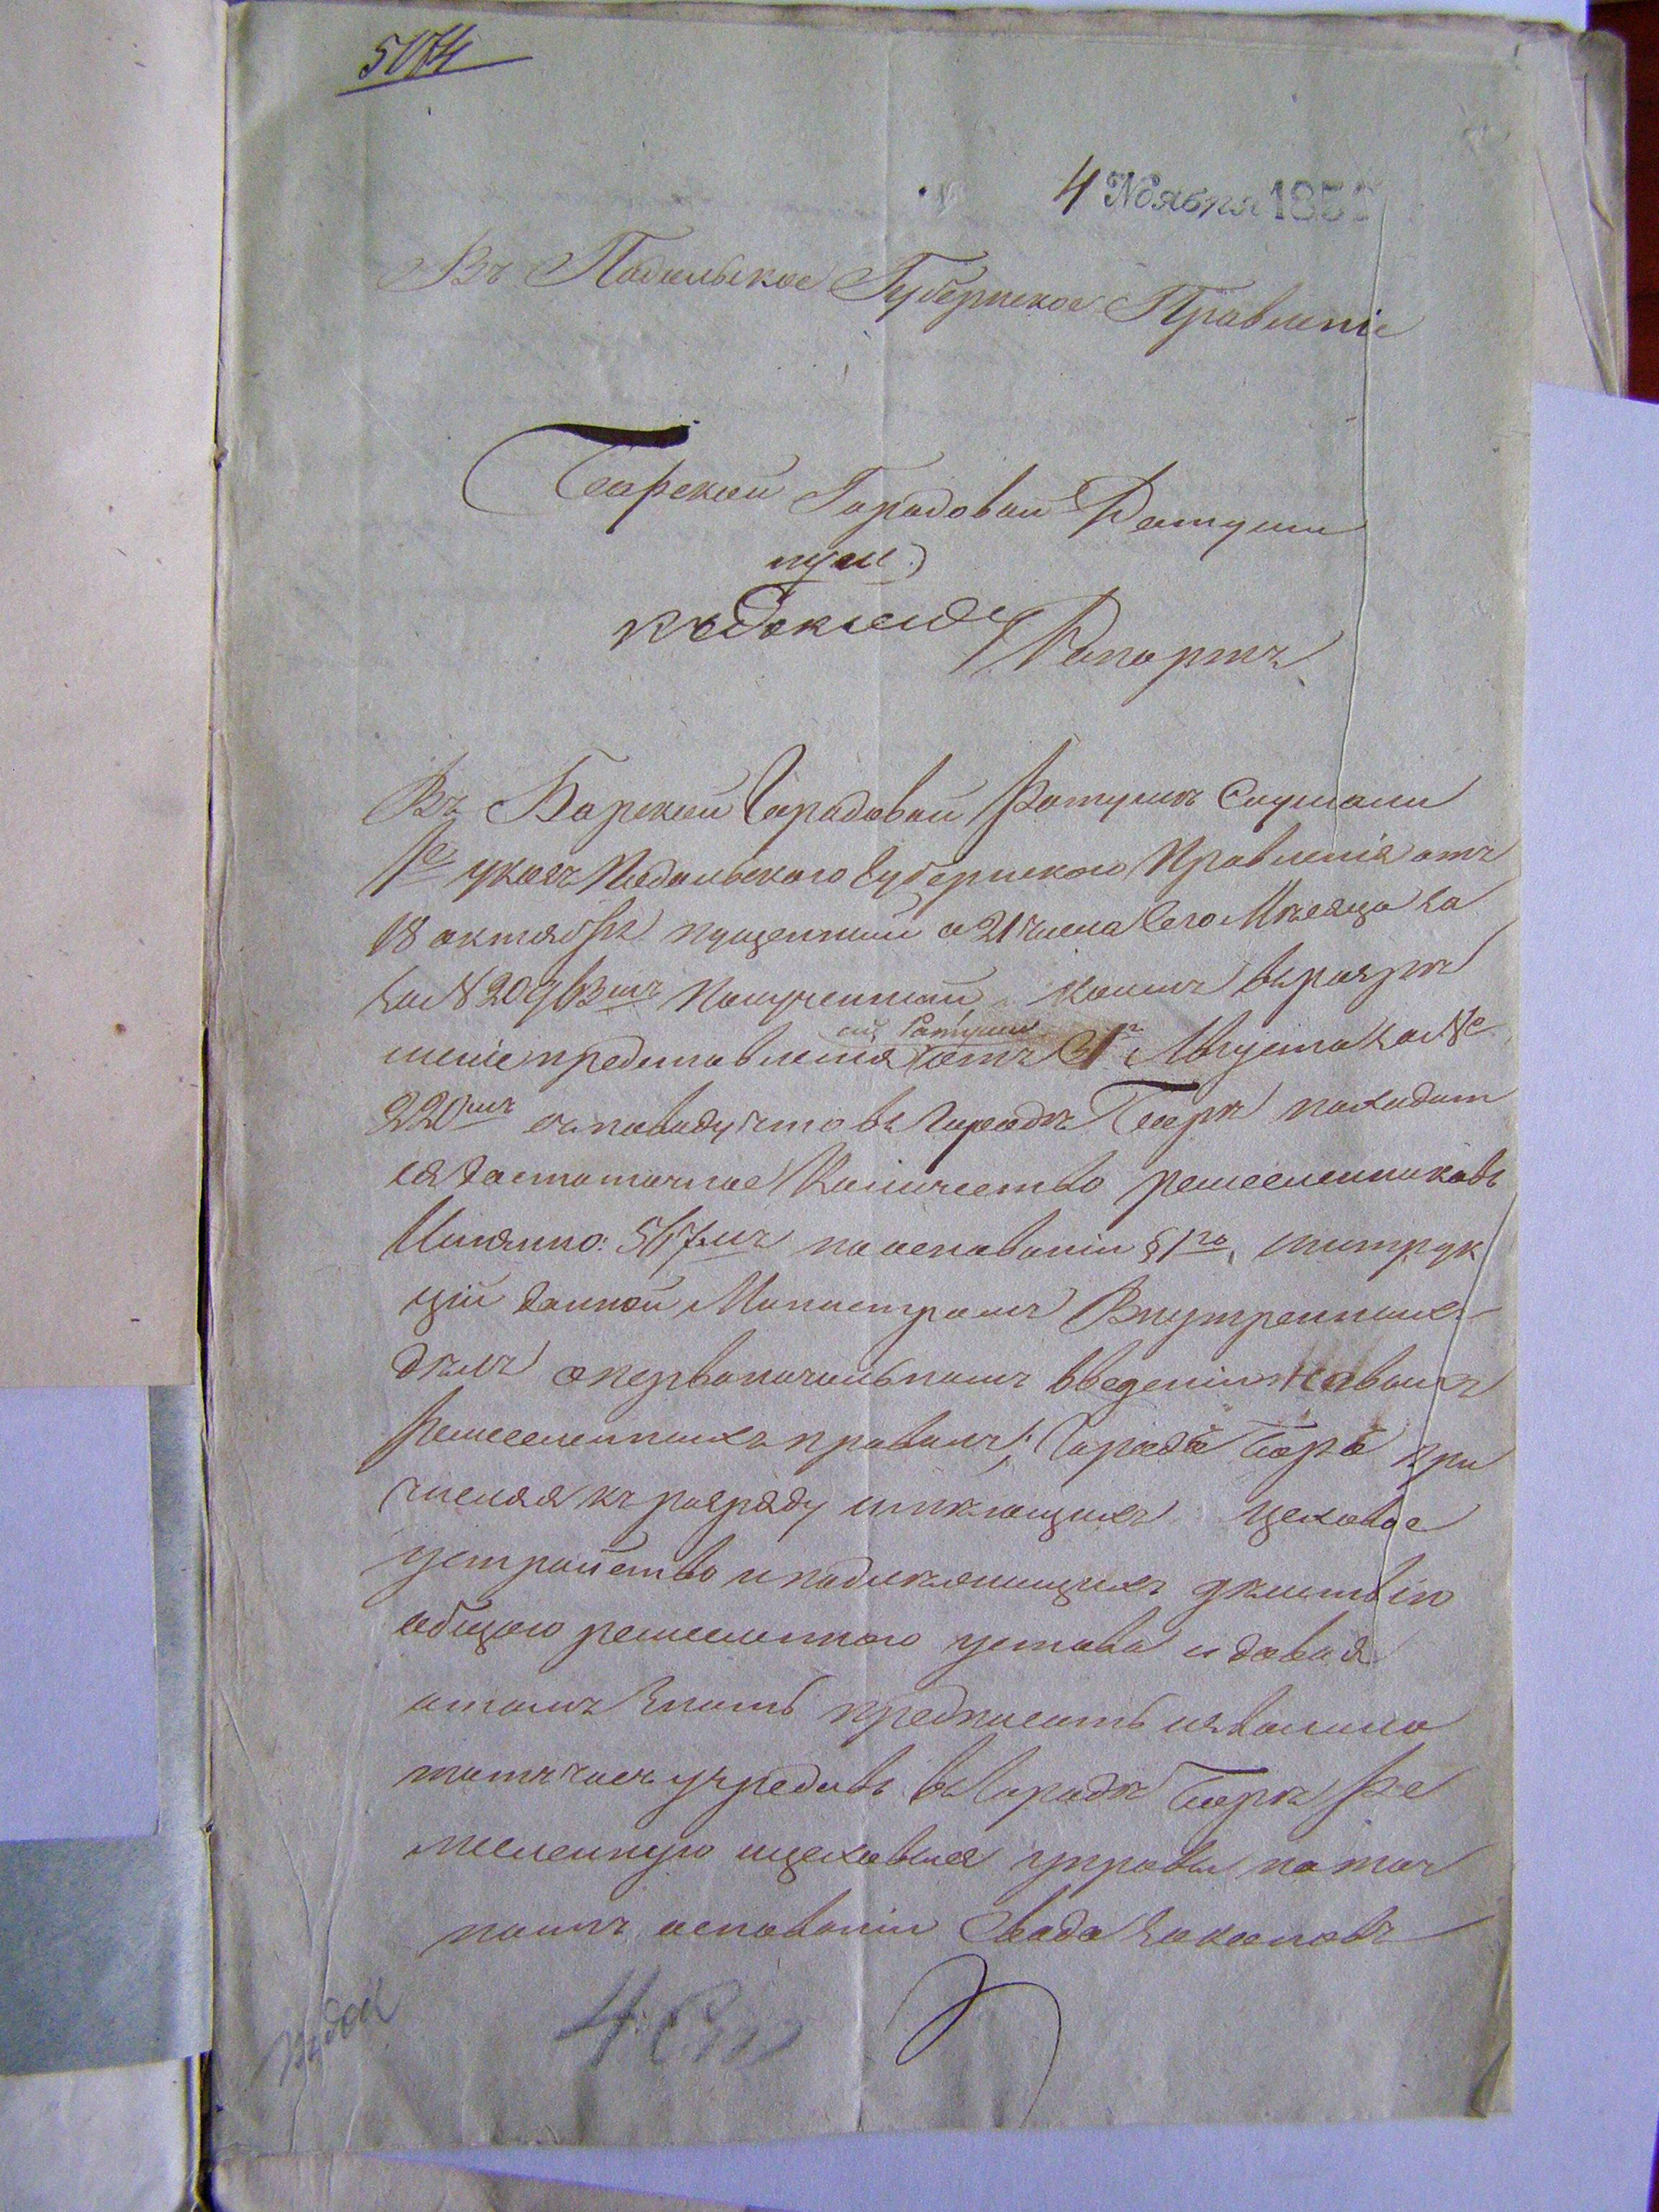 5174
4 Ноября 185
Въ Подольское Губернское Правленіе
Барской Городовой Ратуши
къ докладу
Рапортъ
Въ Барской Городовой Ратушѣ Слушали
1е указъ Подольского Губернского Правленія отъ
18 октября пущенный а 21 числа Сего Мѣсяца за
полученный коимъ въ разрѣ
сей Ратуши
шеніе представленія отъ 31г Августа за №
220мъ по поводу что въ Городѣ Барѣ находит
ся достаточное Количество ремесленниковъ
Имянно: 517мъ на основаніи §1го, инструк
ціи данной Министромъ Внутреннихъ
дѣлъ о первоначальномъ введеніи новыхъ
Ремесленныхъ правилъ; Городъ Баръ при
числяя къ разряду имѣющихъ цеховое
устройство и подлежащихъ дѣйствію
общаго ремесленного устава и давая
о томъ знать предписать
тотъ часъ учредить въ Городѣ Барѣ Ре
месленную и цеховыя управы на точ
номъ основаніи Свода Законовъ